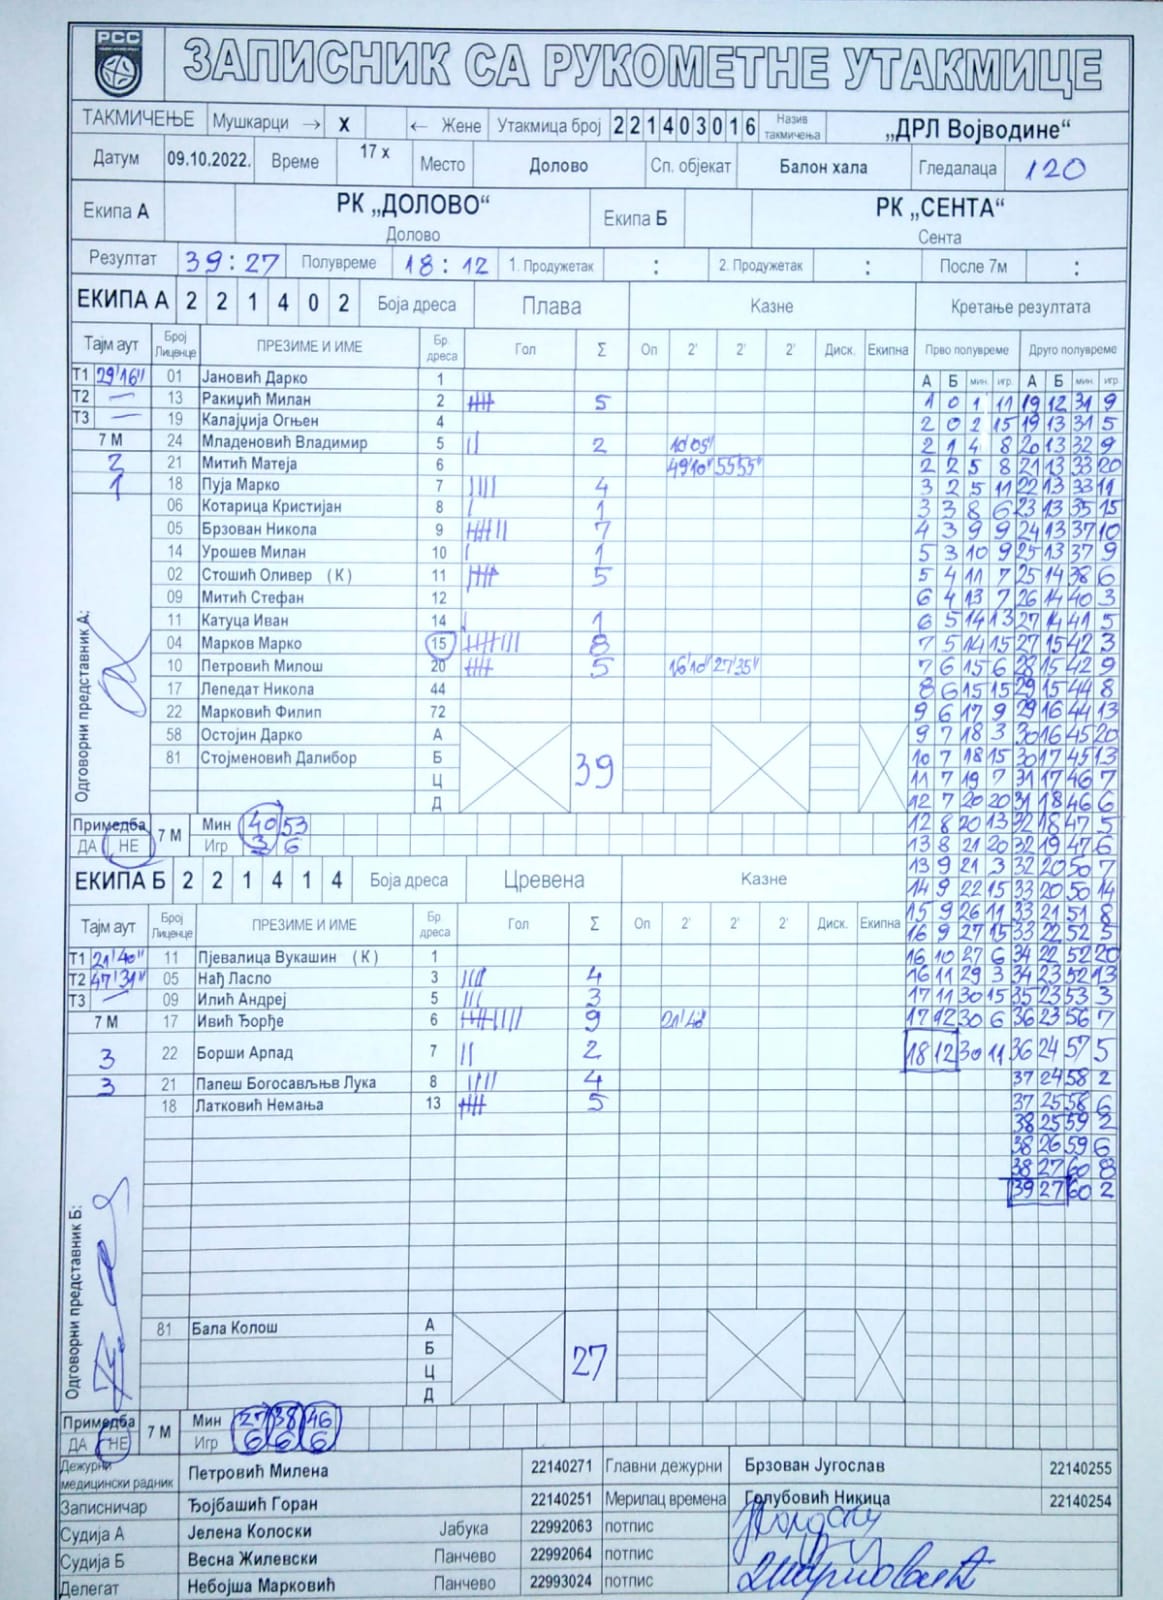 РСС
ЗАПИСНИК СА РУКОМЕТНЕ УТАКМИЦЕ
ТАКМИЧЕЊЕ Мушкарци → X ← Жене Утакмица број 2 2 1 4 0 3 0 1 6 Назив такмичења „ДРЛ Војводине“
Датум 09.10.2022. Време 17 x Место Долово Сп. објекат Балон хала Гледалаца 120
Екипа А РК „ДОЛОВО“ Долово Екипа Б РК „СЕНТА“ Сента
Резултат 39 : 27 Полувреме 18 : 12 1. Продужетак : 2. Продужетак : После 7м :
ЕКИПА А 2 2 1 4 0 2 Боја дреса Плава Казне Кретање резултата
Тајм аут Број Лиценце ПРЕЗИМЕ И ИМЕ Бр. дреса Гол Σ Оп 2' 2' 2' Диск. Екипна Прво полувреме Друго полувреме
А Б мин. игр. А Б мин. игр.
Т1 29'16" 01 Јановић Дарко 1
1 0 1 11 19 12 31 9
Т2 — 13 Ракиџић Милан 2 5
2 0 2 15 19 13 31 5
Т3 — 19 Калајџија Огњен 4
2 1 4 8 20 13 32 9
7 М 24 Младеновић Владимир 5 2 10'05"
2 2 5 8 21 13 33 20
2 21 Митић Матеја 6 49'10" 55'55"
3 2 5 11 22 13 33 11
1 18 Пуја Марко 7 4
3 3 8 6 23 13 35 15
06 Котарица Кристијан 8 1
4 3 9 9 24 13 37 10
05 Брзован Никола 9 7
5 3 10 9 25 13 37 9
14 Урошев Милан 10 1
5 4 11 7 25 14 38 6
02 Стошић Оливер (К) 11 5
6 4 13 7 26 14 40 3
09 Митић Стефан 12
6 5 14 13 27 14 41 5
11 Катуца Иван 14 1
7 5 14 15 27 15 42 3
04 Марков Марко 15 8
7 6 15 6 28 15 42 9
10 Петровић Милош 20 5 16'10" 27'35"
8 6 15 15 29 15 44 8
17 Лепедат Никола 44
9 6 17 9 29 16 44 13
22 Марковић Филип 72
9 7 18 3 30 16 45 20
58 Остојин Дарко А
10 7 18 15 30 17 45 13
81 Стојменовић Далибор Б 39
11 7 19 7 31 17 46 7
Ц
12 7 20 20 31 18 46 6
Д
Одговорни представник А:
12 8 20 13 32 18 47 5
Примедба ДА НЕ 7 М Мин 40 53
Игр 3 6
13 8 21 20 32 19 47 6
13 9 21 3 32 20 50 7
ЕКИПА Б 2 2 1 4 1 4 Боја дреса Црвена Казне
14 9 22 15 33 20 50 14
15 9 26 11 33 21 51 8
Тајм аут Број Лиценце ПРЕЗИМЕ И ИМЕ Бр. дреса Гол Σ Оп 2' 2' 2' Диск. Екипна
16 9 27 15 33 22 52 5
Т1 21'40" 11 Пјевалица Вукашин (К) 1
16 10 27 6 34 22 52 20
Т2 47'31" 05 Нађ Ласло 3 4
16 11 29 3 34 23 52 13
Т3 — 09 Илић Андреј 5 3
17 11 30 15 35 23 53 3
7 М 17 Ивић Ђорђе 6 9
17 12 30 6 36 23 56 7
3 22 Борши Арпад 7 2
18 12 30 11 36 24 57 5
3 21 Папеш Богосављњв Лука 8 4
37 24 58 2
18 Латковић Немања 13 5
37 25 58 6
38 25 59 2
38 26 59 6
38 27 60 8
39 27 60 2
Одговорни представник Б:
81 Бала Колош А
Б 27
Ц
Д
Примедба ДА НЕ 7 М Мин 27 38 46
Игр 6 6 6
Дежурни медицински радник Петровић Милена 22140271 Главни дежурни Брзован Југослав 22140255
Записничар Ђојбашић Горан 22140251 Мерилац времена Голубовић Никица 22140254
Судија А Јелена Колоски Јабука 22992063 потпис
Судија Б Весна Жилевски Панчево 22992064 потпис
Делегат Небојша Марковић Панчево 22993024 потпис